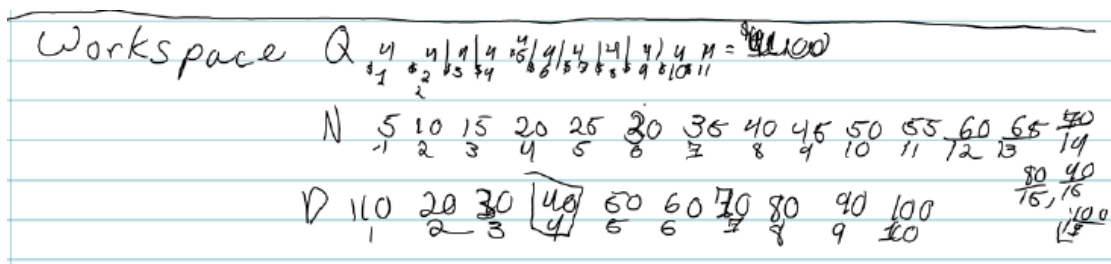 Workspace Q 4 4 4 4 4 4 4 4 4 4 4 =
$1 $2 $3 $4 $5 $6 $7 $8 $9 $10 $11
2
N 5 10 15 20 25 30 35 40 45 50 55 60 65 70
1 2 3 4 5 6 7 8 9 10 11 12 13 14
80 90
15, 16
100
D 110 20 30 40 50 60 70 80 90 100
1 2 3 4 5 6 7 8 9 10